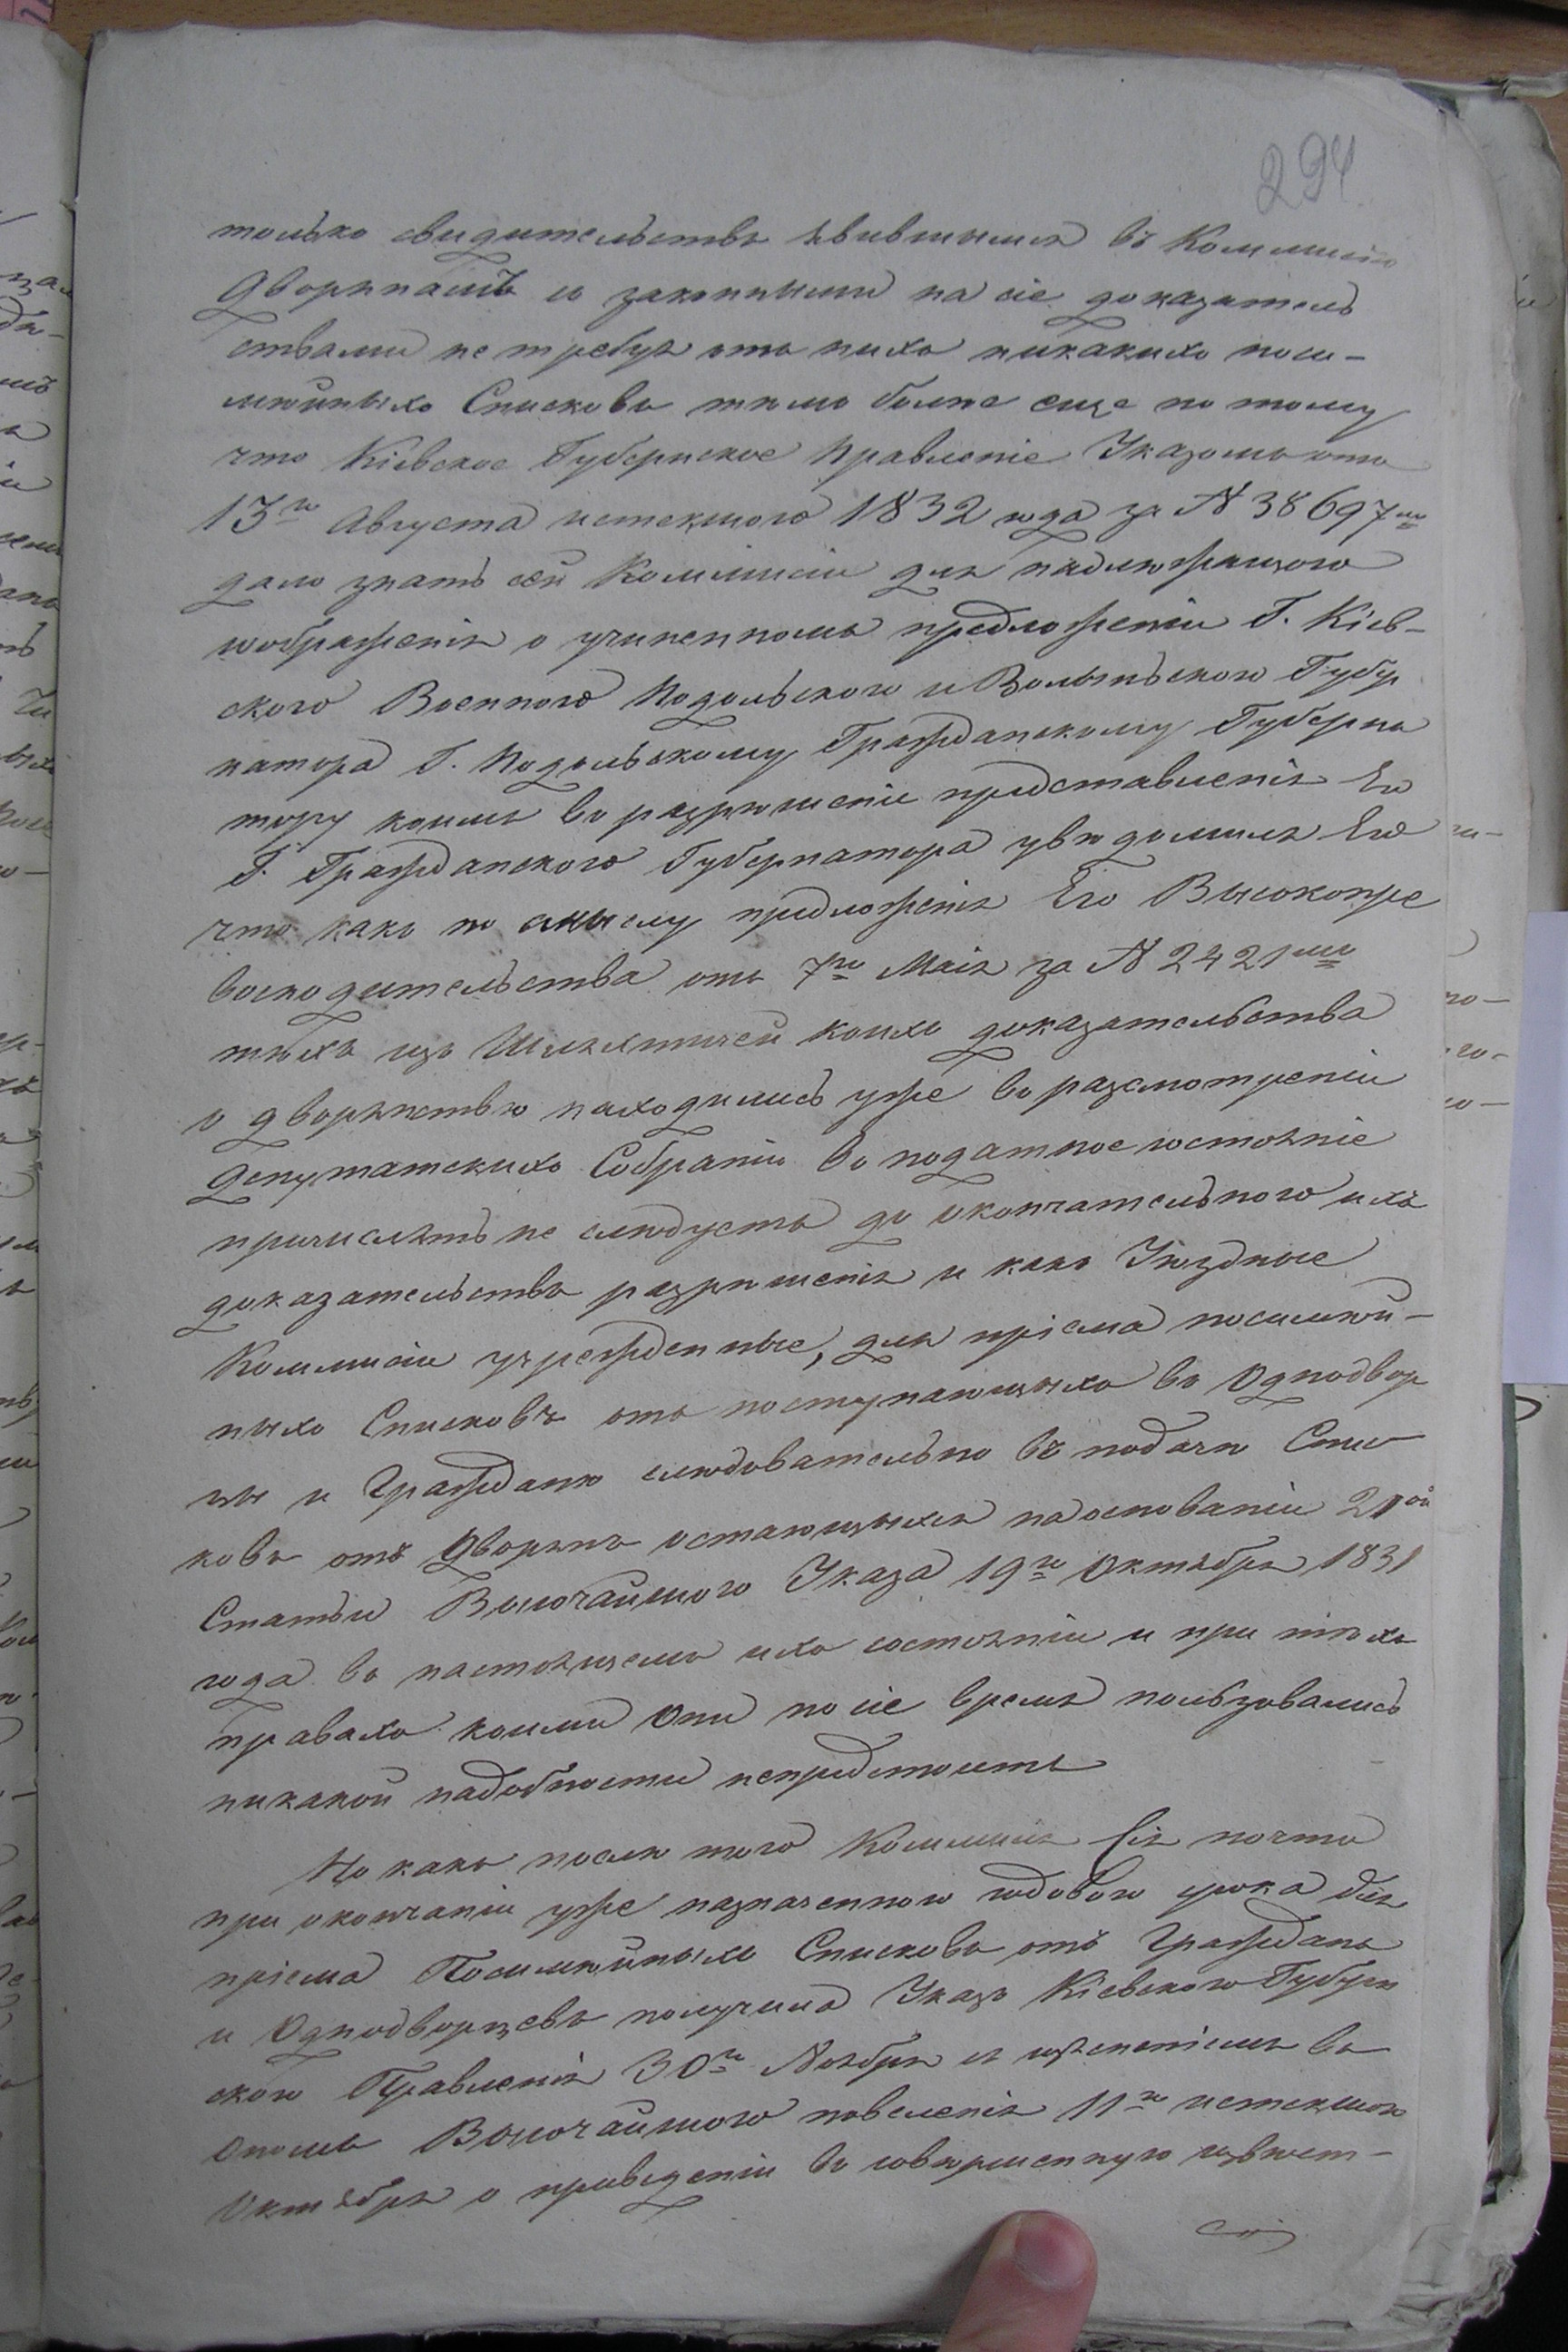 294
только свидетельствъ явившимся въ Коммисію
Дворянамъ съ законными на сіе доказатель
ствами не требуя отъ нихъ никакихъ посе-
мѣйныхъ Списковъ тѣмъ болѣе еще по тому
что Кіевское Губернское Правленіе Указомъ отъ
13го Августа истекшого 1832 года за N 38697мъ
дало знать сей Коммисіи для надлежащого
соображенія о учиненномъ предложеніи Г. Кіев-
ского Военного Подольского и Волынского Губер
натора Г. Подольскому Гражданскому Губерна
тору коимъ въ разрѣшеніе представленія Его
Г. Гражданского Губернатора увѣдомилъ Его
что какъ по смыслу предложенія Его Высокопре
восходительства отъ 7го Маія за N 2421мъ
тѣхъ изъ Шляхтичей коихъ доказательства
о дворянствѣ находились уже въ разсмотреніи
Депутатскихъ Собраній въ податное состояніе
причислять не слѣдуетъ до окончательного ихъ
доказательствъ разрѣшенія и какъ Уѣздные
Коммисіи учрежденные, для пріема посемѣй-
ныхъ Списковъ отъ поступающихъ въ Однодвор
цы и Граждане слѣдовательно въ подачѣ Спис
ковъ отъ Дворянъ остающихся на основаніи 21ой
Статьи Высочайшого Указа 19го Октября 1831
года въ настоящемъ ихъ состояніи и при тѣхъ
правахъ коими Они по сіе время пользовались
никакой надобности непредстоитъ
Но какъ послѣ того Коммисія Сія почти
при окончаніи уже назначенного годового срока для
пріема Посемѣйныхъ Списковъ отъ Гражданъ
и Однодворцевъ получила Указъ Кіевского Губерн
ского Правленія 30го Ноября съ изясненіемъ въ
Ономъ Высочайшого повеленія 11го истекшого
Октября о приведеніи въ совершенную извѣст-